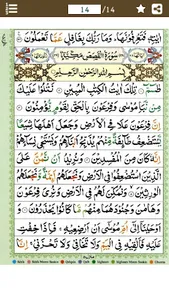 14 /14
اٰيٰتِهٖ فَتَعْرِفُوْنَهَا ؕ وَمَا رَبُّكَ بِغَافِلٍ عَمَّا تَعْمَلُوْنَ
سُوْرَةُ الْقَصَصِ مَكِّيَّةٌ
بِسْمِ اللّٰهِ الرَّحْمٰنِ الرَّحِيْمِ
طٰسٓمّٓ تِلْكَ اٰيٰتُ الْكِتٰبِ الْمُبِيْنِ نَتْلُوْا عَلَيْكَ
مِنْ نَّبَاِ مُوْسٰى وَفِرْعَوْنَ بِالْحَقِّ لِقَوْمٍ يُّؤْمِنُوْنَ
اِنَّ فِرْعَوْنَ عَلَا فِى الْاَرْضِ وَجَعَلَ اَهْلَهَا شِيَعًا
يَّسْتَضْعِفُ طَآئِفَةً مِّنْهُمْ يُذَبِّحُ اَبْنَآءَهُمْ وَيَسْتَحْىٖ
نِسَآءَهُمْ ؕ اِنَّهٗ كَانَ مِنَ الْمُفْسِدِيْنَ وَنُرِيْدُ اَنْ نَّمُنَّ
عَلَى الَّذِيْنَ اسْتُضْعِفُوْا فِى الْاَرْضِ وَنَجْعَلَهُمْ اَئِمَّةً
وَّنَجْعَلَهُمُ الْوٰرِثِيْنَ وَنُمَكِّنَ لَهُمْ فِى الْاَرْضِ وَنُرِىَ
فِرْعَوْنَ وَهَامٰنَ وَجُنُوْدَهُمَا مِنْهُمْ مَّا كَانُوْا يَحْذَرُوْنَ
وَاَوْحَيْنَآ اِلٰٓى اُمِّ مُوْسٰٓى اَنْ اَرْضِعِيْهِ ۚ فَاِذَا خِفْتِ
عَلَيْهِ فَاَلْقِيْهِ فِى الْيَمِّ وَلَا تَخَافِىْ وَلَا تَحْزَنِىْ ۚ اِنَّا